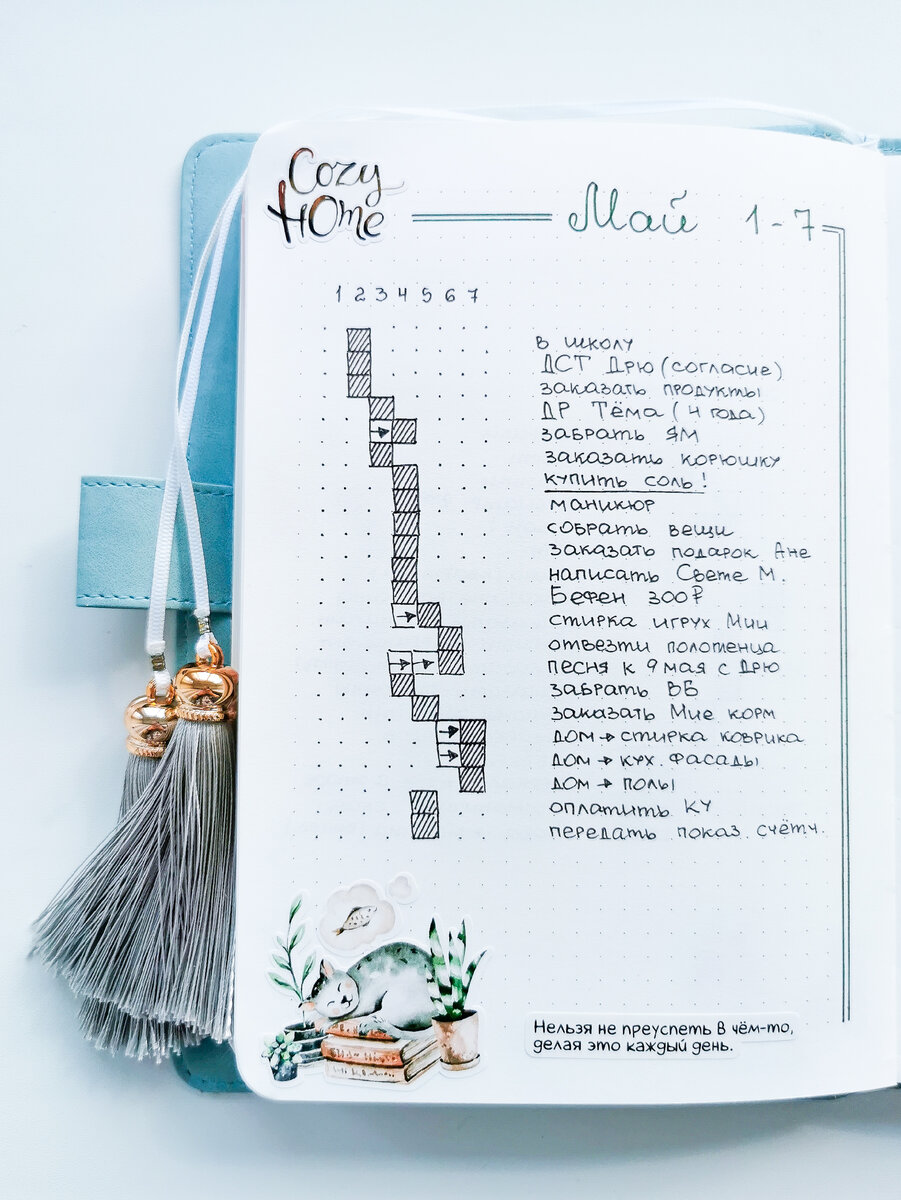 Cozy
Home
Май 1-7
1 2 3 4 5 6 7
в школу
ДСТ Дрю (согласие)
заказать продукты
ДР Тёма (4 года)
забрать ЯМ
заказать корюшку
купить соль!
маникюр
собрать вещи
заказать подарок Ане
написать Свете М.
Бефен 300₽
стирка игрух Мии
отвезти полотенца
песня к 9 мая с Дрю
забрать ВБ
заказать Мие корм
дом → стирка коврика
дом → кух. фасады
дом → полы
оплатить КУ
передать показ. счётч.
Нельзя не преуспеть в чём-то,
делая это каждый день.